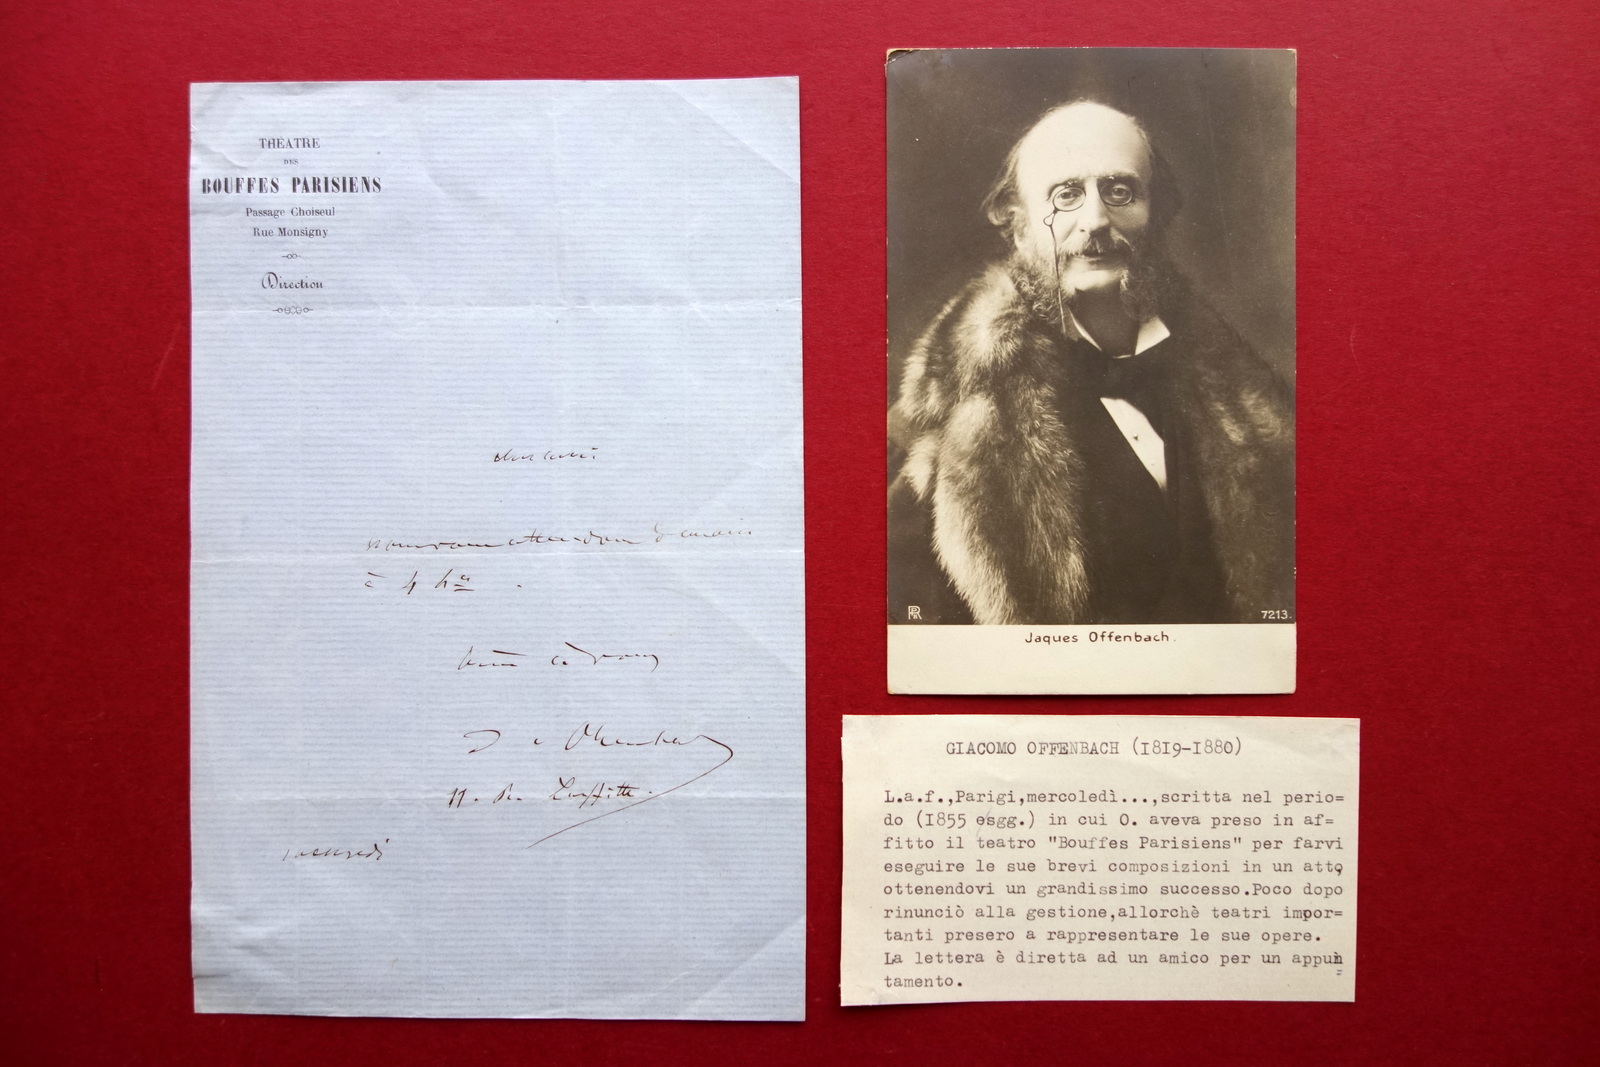 THÉATRE
DES
BOUFFES PARISIENS
Passage Choiseul
Rue Monsigny
Direction
cher ami
nous vous attendons demain
à 4 h
tout à vous
J Offenbach
11. R. Laffitte.
mercredi
PR
7213.
Jaques Offenbach.
GIACOMO OFFENBACH (1819-1880)
L.a.f.,Parigi,mercoledì...,scritta nel perio=
do (1855 esgg.) in cui O. aveva preso in af=
fitto il teatro "Bouffes Parisiens" per farvi
eseguire le sue brevi composizioni in un atto,
ottenendovi un grandissimo successo.Poco dopo
rinunciò alla gestione,allorchè teatri impor=
tanti presero a rappresentare le sue opere.
La lettera è diretta ad un amico per un appun=
tamento.